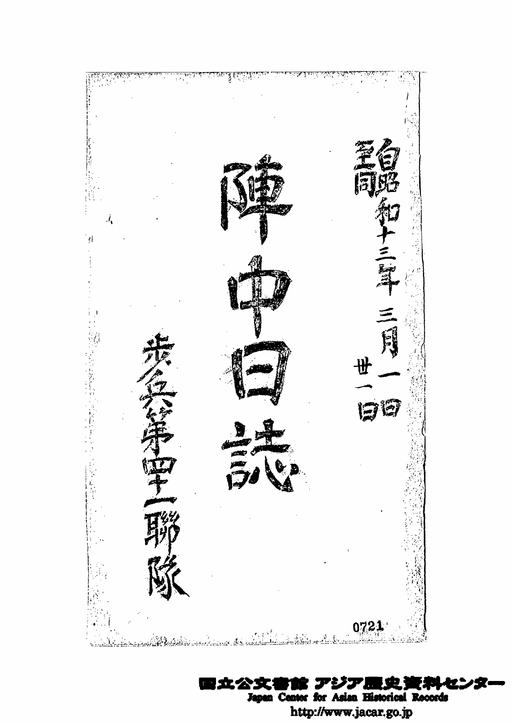 自昭和十三年三月一日
至同 卅一日
陣中日誌
歩兵第四十一聯隊
0721
国立公文書館 アジア歴史資料センター
Japan Center for Asian Historical Records
http://www.jacar.go.jp